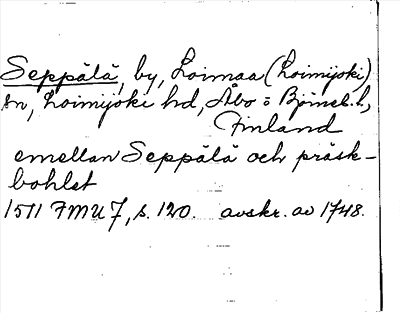 Seppälä, by, Loimaa (Loimijoki)
sn, Loimijoki hd, Åbo o Björneb. l,
Finland
emellan Seppälä och präsk-
bohlet
1511 FMU 7, s. 120. avskr. av 1748.